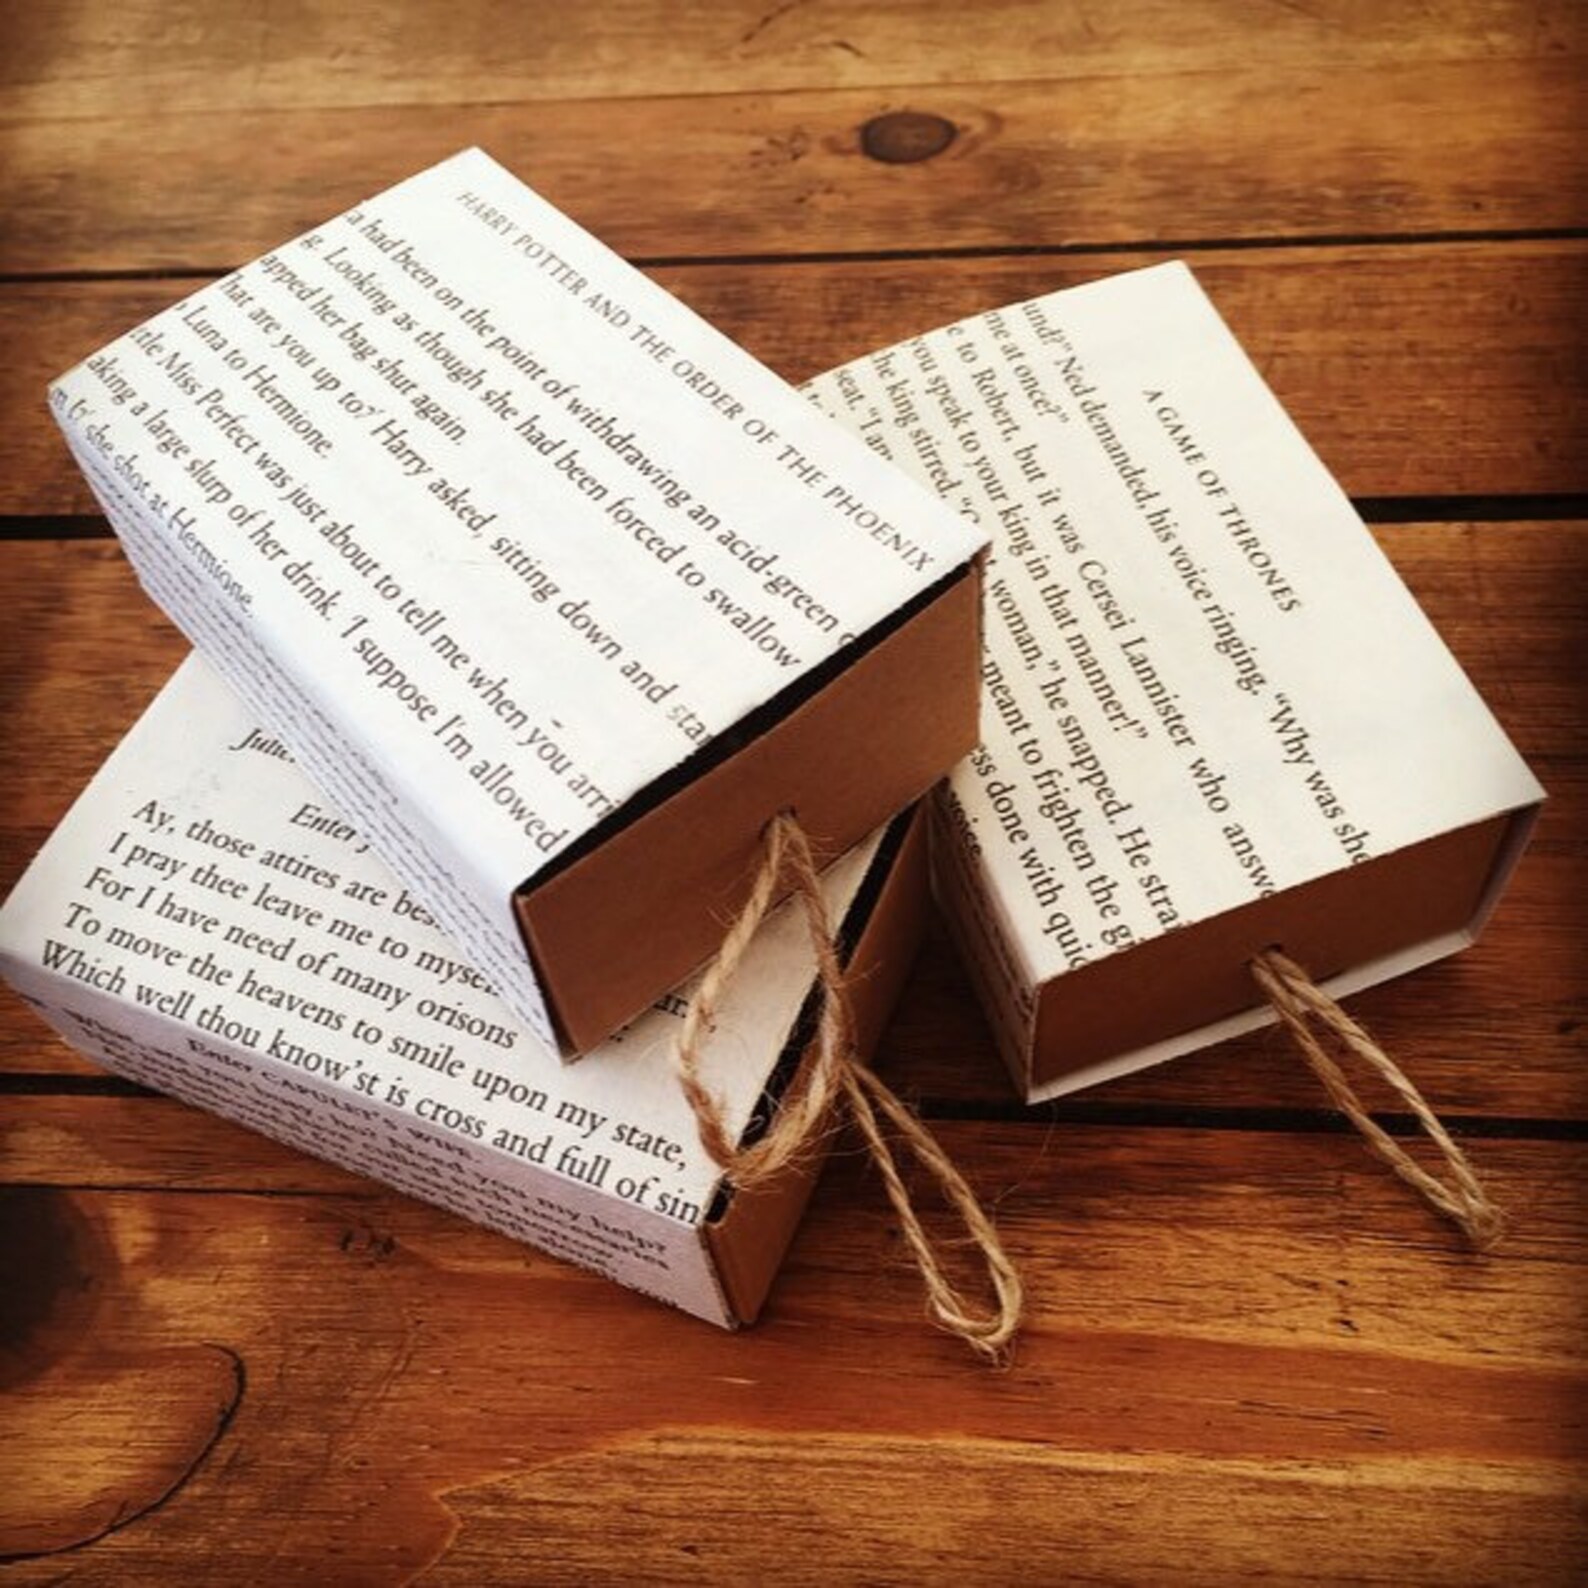 HARRY POTTER AND THE ORDER OF THE PHOENIX
a had been on the point of withdrawing an acid-green
g. Looking as though she had been forced to swallow
apped her bag shut again.
hat are you up to?' Harry asked, sitting down and star
Luna to Hermione.
ttle Miss Perfect was just about to tell me when you arri
aking a large slurp of her drink. 'I suppose I'm allowed
she shot at Hermione.
A GAME OF THRONES
und?" Ned demanded, his voice ringing. "Why was she
me at once?"
e to Robert, but it was Cersei Lannister who answe
you speak to your king in that manner!"
he king stirred. woman," he snapped. He strai
seat. "I am meant to frighten the gi
ss done with quic
voice
Enter
Ay, those attires are bes
I pray thee leave me to mysel
For I have need of many orisons
To move the heavens to smile upon my state,
Which well thou know'st is cross and full of sin
Enter CAPULET'S WIFE
What, are you busy, ho? Need you my help?
such necessaries